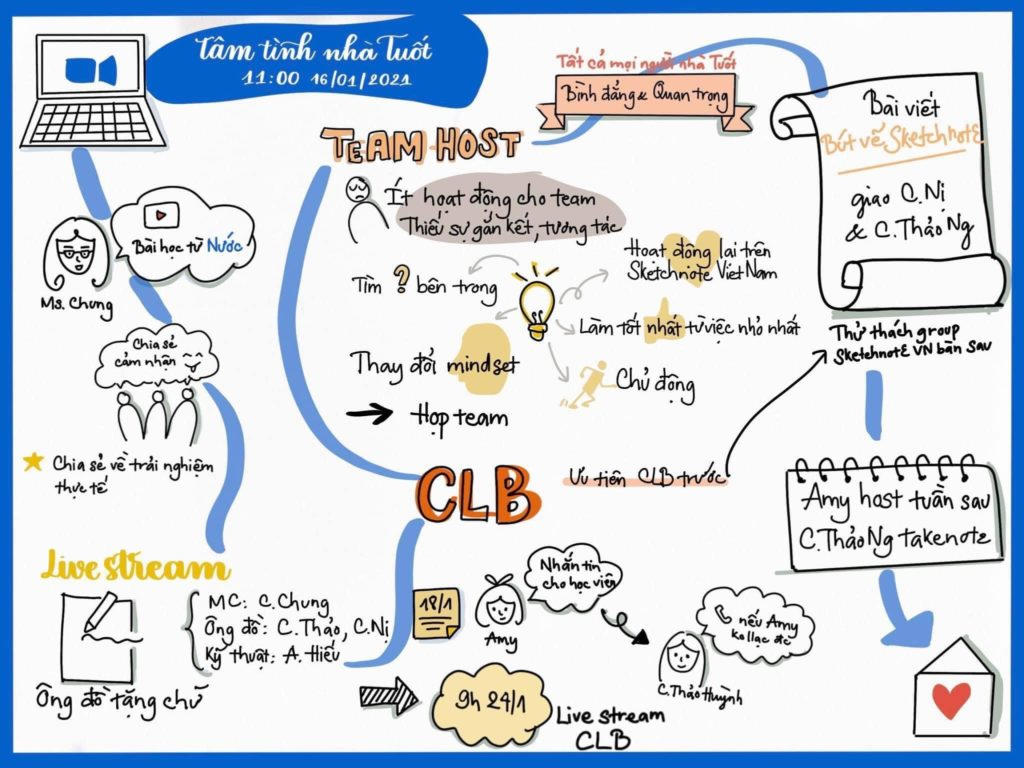 Tâm tình nhà Tuốt
11:00 16/01/2021
Bài học từ Nước
Ms. Chung
Chia sẻ
cảm nhận
Chia sẻ về trải nghiệm
thực tế
Live stream
MC: C.Chung
Ông đồ: C.Thảo, C.Nị
Kỹ thuật: A.Hiếu
Ông đồ tặng chữ
CLB
18/1
Amy
Nhắn tin
cho học viên
C.Thảo Huỳnh
nếu Amy
ko lạc đc
9h 24/1
Live stream
CLB
Ưu tiên CLB trước
TEAM HOST
Ít hoạt động cho team
Thiếu sự gắn kết, tương tác
Tìm ? bên trong
Thay đổi mindset
Hoạt động lại trên
Sketchnote Viet Nam
Làm tốt nhất từ việc nhỏ nhất
Chủ động
Họp team
Tất cả mọi người nhà Tuốt
Bình đẳng & Quan trọng
Bài viết
Bút vẽ Sketchnote
giao C.Nị
& C.Thảo Ng
Thử thách group
Sketchnote VN bàn sau
Amy host tuần sau
C.Thảo Ng takenote